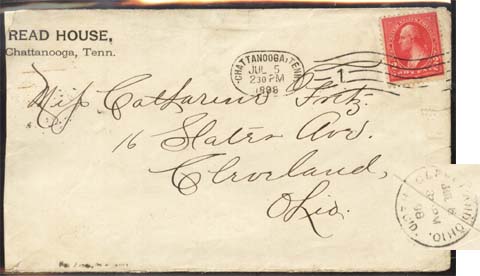 READ HOUSE,
Chattanooga, Tenn.
CHATTANOOGA, TENN.
JUL 5
2 30 PM
1898
1
Miss Catharine Fritz.
16 Slater Ave.
Cleveland,
Ohio.
CLEVELAND, OHIO.
JUL
PM
98